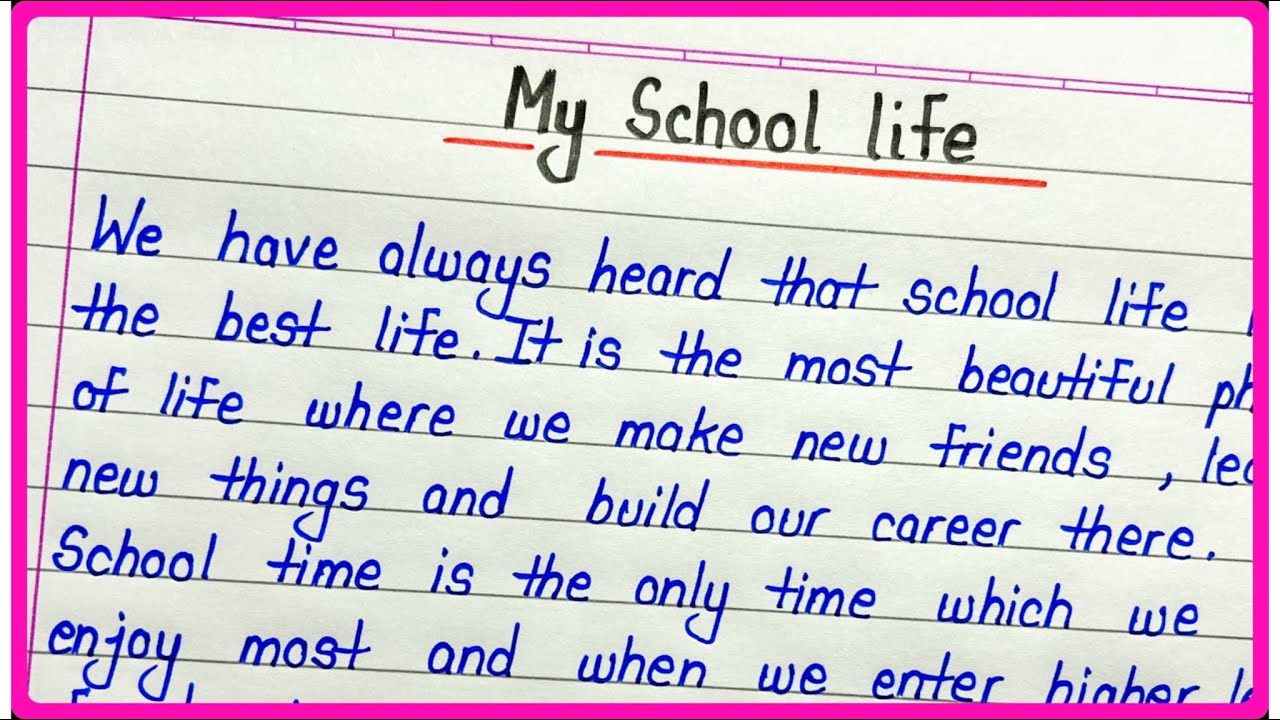 My School life
We have always heard that school life
the best life. It is the most beautiful
of life where we make new friends ,
new things and build our career there.
School time is the only time which we
enjoy most and when we enter higher